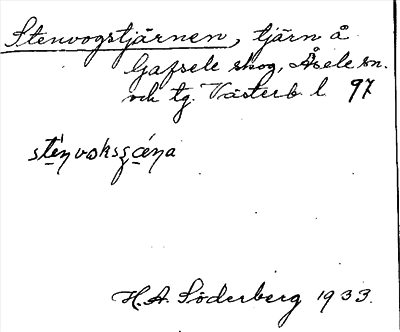 Stenvogstjärnen, tjärn å
Gafsele skog, Åsele sn.
och tg. Västerb. l 97
H.A. Söderberg 1933.